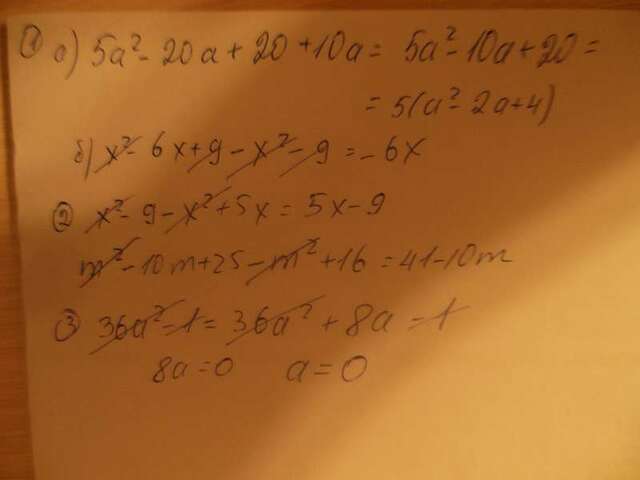 ① а) 5a² - 20a + 20 + 10a = 5a² - 10a + 20 =
= 5(a² - 2a + 4)
б) x² - 6x + 9 - x² - 9 = -6x
② x² - 9 - x² + 5x = 5x - 9
m² - 10m + 25 - m² + 16 = 41 - 10m
③ 36a² - 1 = 36a² + 8a - 1
8a = 0 a = 0